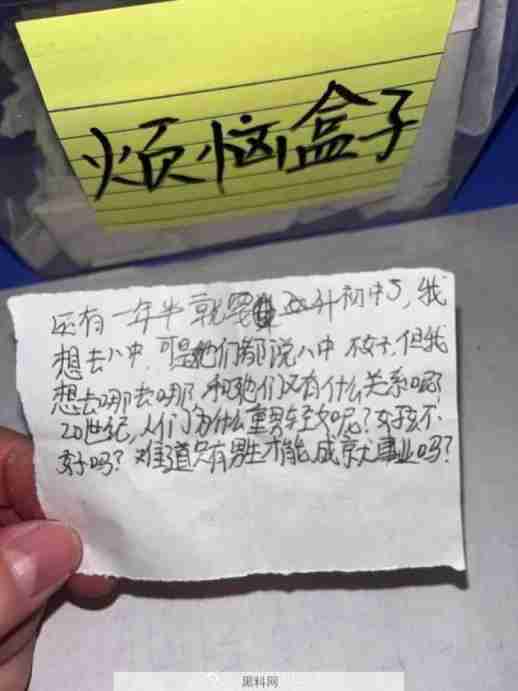 烦恼盒子
还有一年半就要 小升初中了，我
想去八中，可是他们都说八中不好，但我
想去哪去哪，和他们又有什么关系呢？
20世纪，人们为什么重男轻女呢？女孩不
好吗？难道只有男生才能成就大事业吗？
黑料网